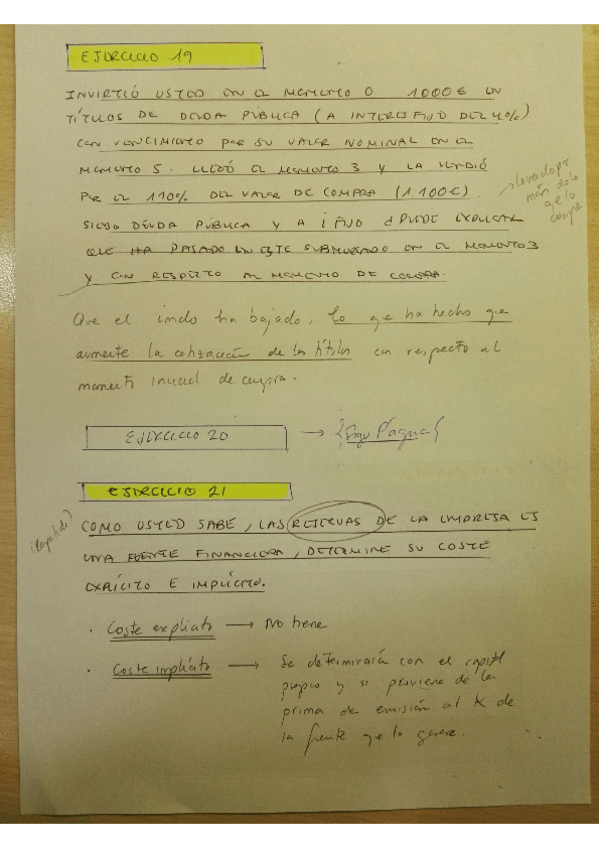 EJERCICIO 19
INVIRTIÓ USTED EN EL MOMENTO 0 1000€ EN
TÍTULOS DE DEUDA PÚBLICA (A INTERES FIJO DEL 4%)
CON VENCIMIENTO POR SU VALOR NOMINAL EN EL
MOMENTO 5. LLEGÓ EL MOMENTO 3 Y LA VENDIÓ
POR EL 110% DEL VALOR DE COMPRA (1.100€).
más de lo
q e lo
SIENDO DEUDA PÚBLICA Y A i FIJO ¿PUEDE EXPLICAR
QUE HA PASADO EN ESTE SUBMERCADO EN EL MOMENTO 3
Y CON RESPECTO AL MOMENTO DE COMPRA.
Que el ha bajado, lo q e ha hecho que
aumente la cotización de los títulos con respecto al
momento inicial de compra.
EJERCICIO 20 → Página
EJERCICIO 21
COMO USTED SABE, LAS RESERVAS DE LA EMPRESA ES
UNA FUENTE FINANCIERA, DETERMINE SU COSTE
EXPLÍCITO E IMPLÍCITO.
· Coste explícito → No tiene
· Coste implícito → Se determinará con el capital
propio y si proviene de la
prima de emisión al K de
la fuente q e lo genere.